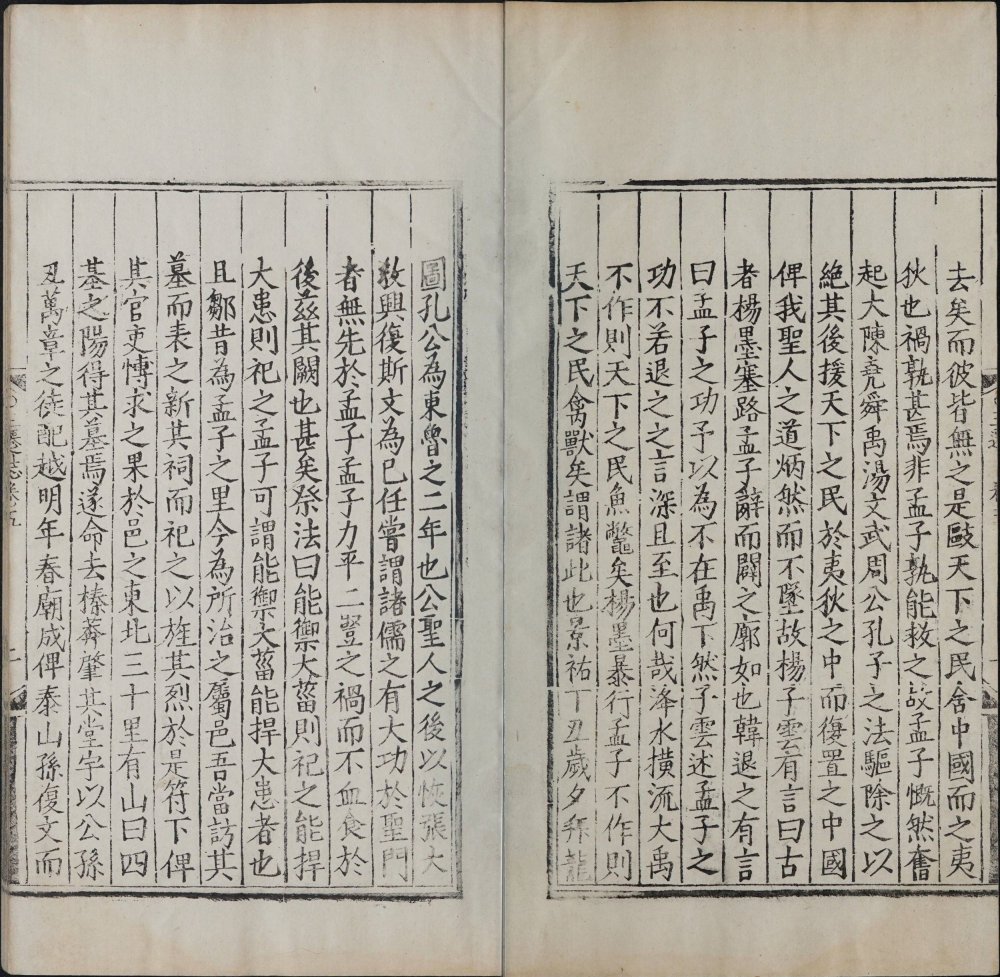 去矣而彼皆無之是敺天下之民舍中國而之夷
狄也禍孰甚焉非孟子孰能救之故孟子慨然奮
起大陳堯舜禹湯文武周公孔子之法驅除之以
絕其後援天下之民於夷狄之中而復置之中國
俾我聖人之道炳然而不墜故楊子雲有言曰古
者楊墨塞路孟子辭而闢之廓如也韓退之有言
曰孟子之功予以為不在禹下然子雲述孟子之
功不若退之之言深且至也何哉洚水橫流大禹
不作則天下之民魚鼈矣楊墨暴行孟子不作則
天下之民禽獸矣謂諸此也景祐丁丑歲夕拜龍
圖孔公為東魯之二年也公聖人之後以恢張大
敎興復斯文為己任嘗謂諸儒之有大功於聖門
者無先於孟子孟子力平二豎之禍而不血食於
後茲其闕也甚矣祭法曰能禦大菑則祀之能捍
大患則祀之孟子可謂能禦大菑能捍大患者也
且鄒昔為孟子之里今為所治之屬邑吾當訪其
墓而表之新其祠而祀之以旌其烈於是符下俾
其官吏博求之果於邑之東北三十里有山曰四
基之陽得其墓焉遂命去榛莽肇其堂宇以公孫
丑萬章之徒配越明年春廟成俾泰山孫復文而